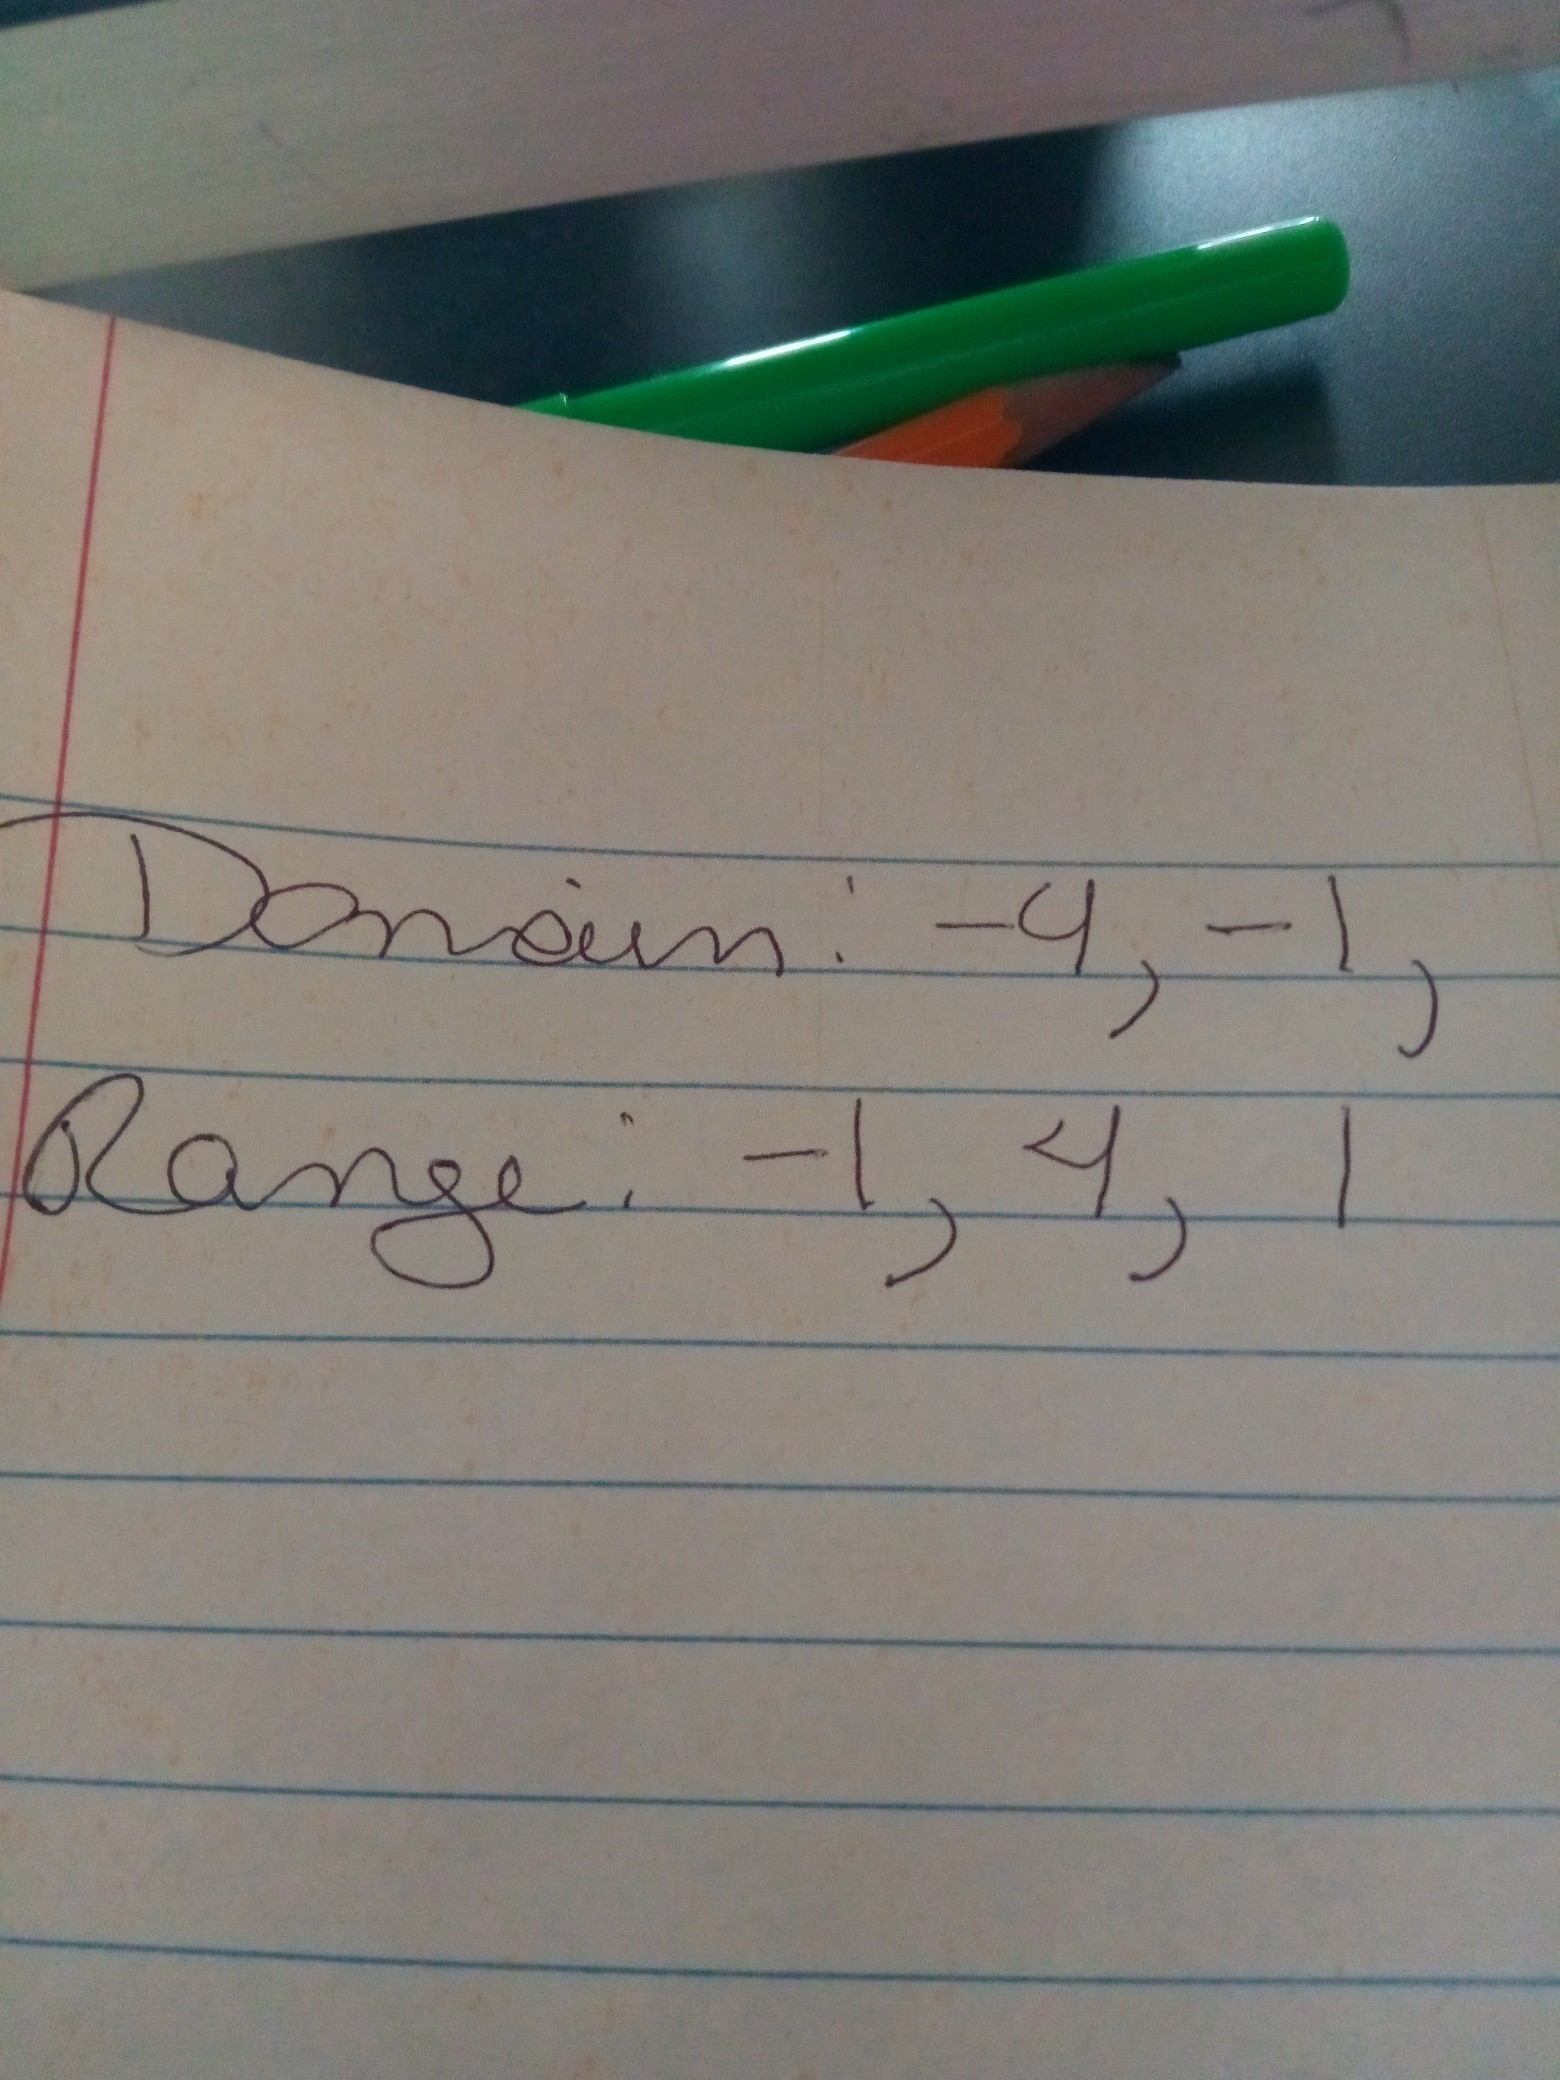 Domain: -4, -1,
Range: -1, 4, 1